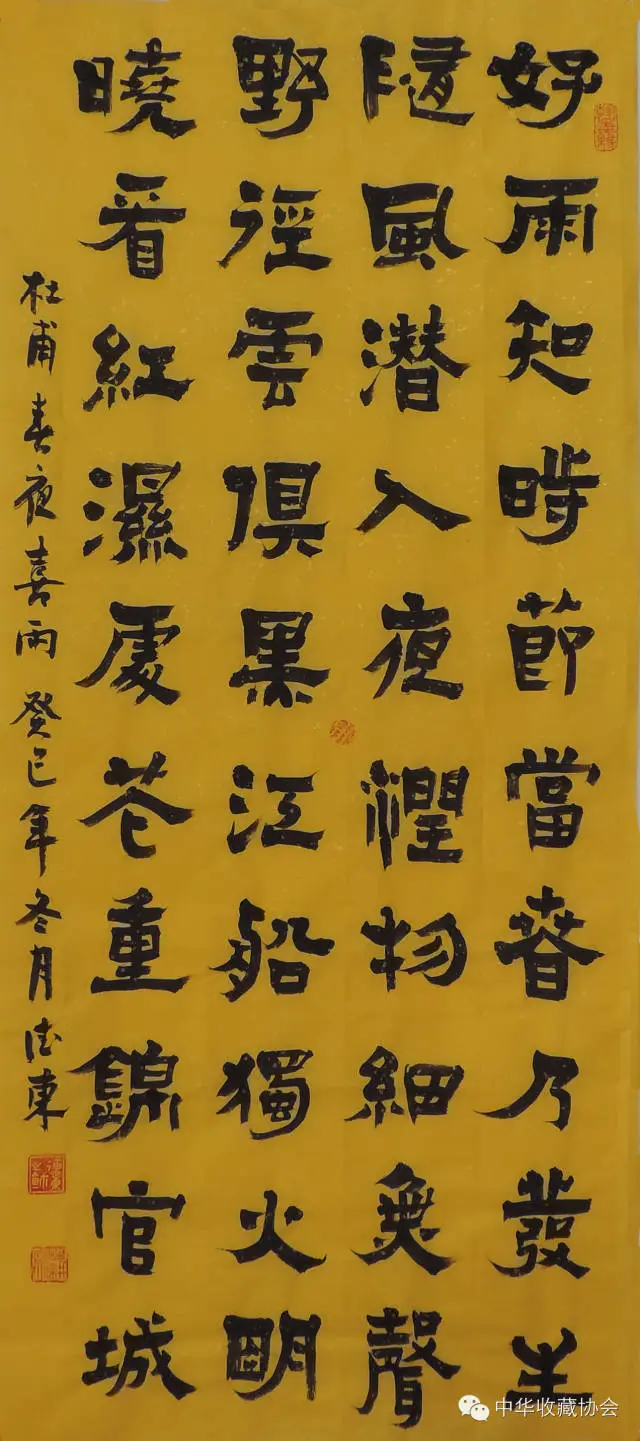 好雨知時節當春乃發生
隨風潜入夜潤物細無聲
野徑雲俱黑江船獨火明
曉看紅濕處花重錦官城
杜甫春夜喜雨 癸巳年冬月德東
中华收藏协会